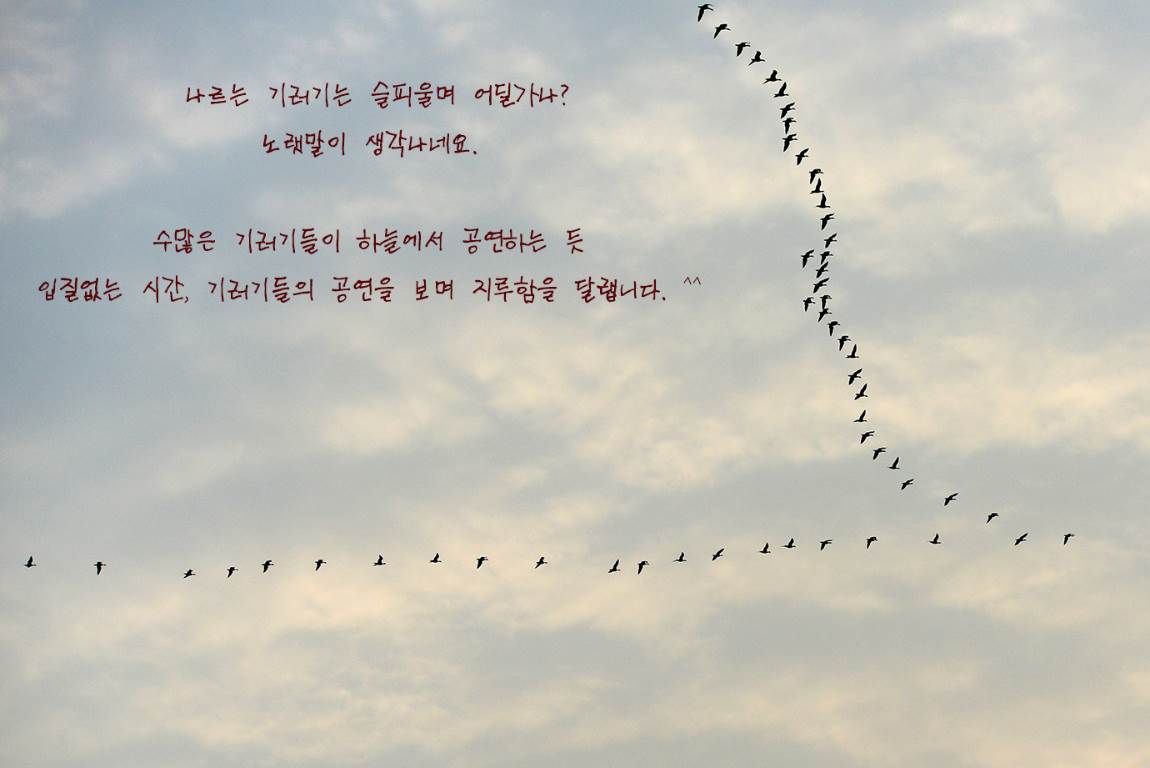 나르는 기러기는 슬피울며 어딜가나?
노랫말이 생각나네요.
수많은 기러기들이 하늘에서 공연하는 듯
입질없는 시간, 기러기들의 공연을 보며 지루함을 달랩니다. ^^